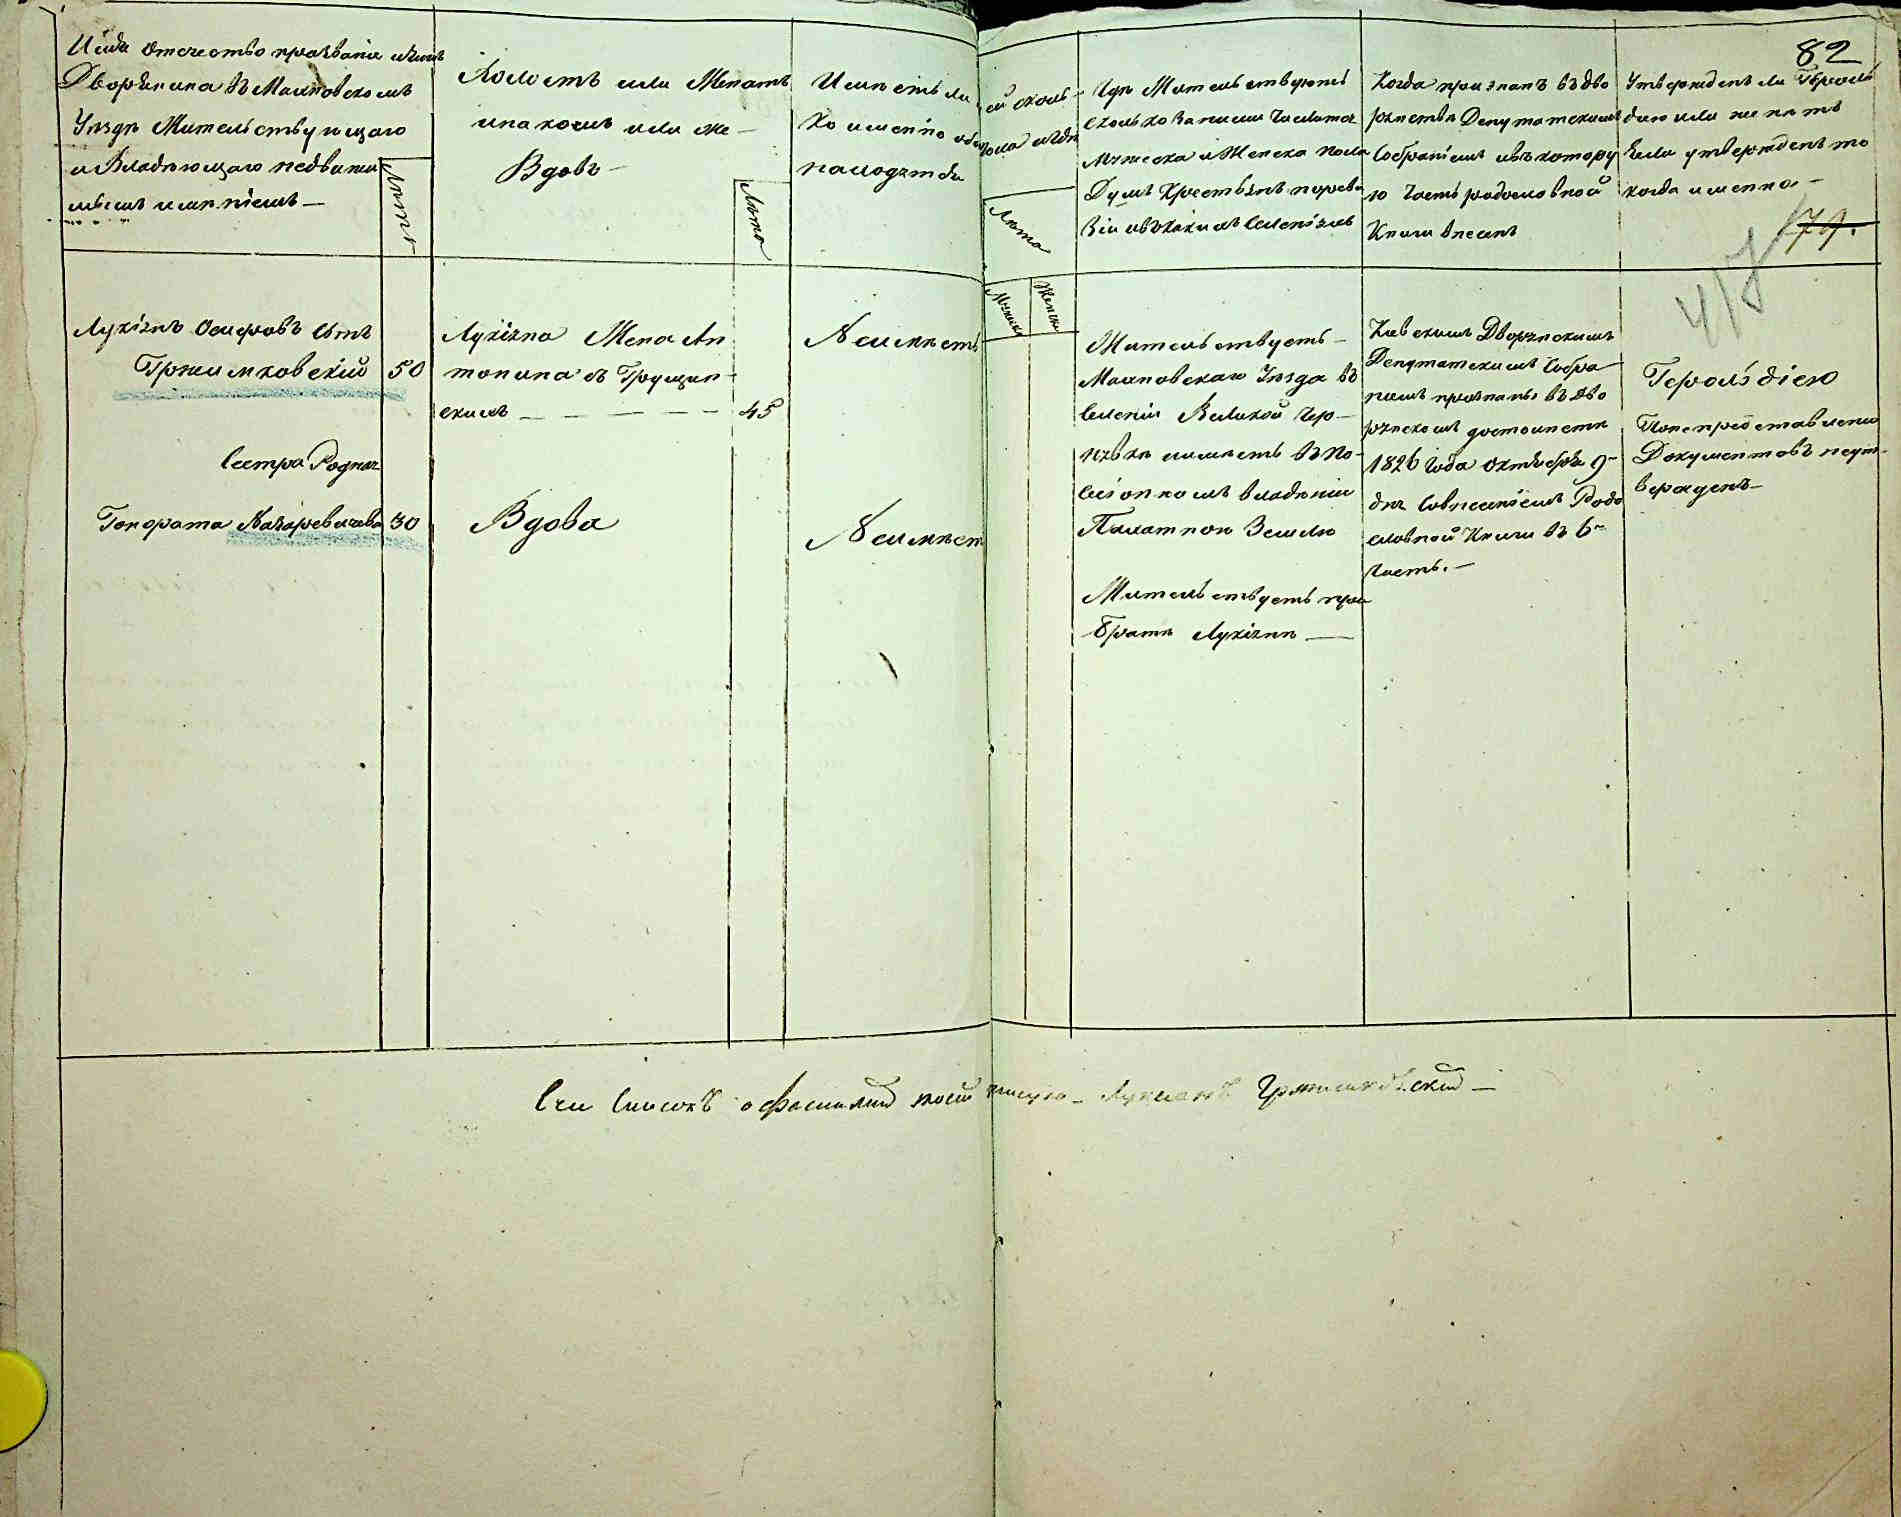 82
Имя отечество прозвание и чинъ
Дворянина въ Махновскомъ
Уѣздѣ Жительствующаго
и Владѣющаго недвижи
мымъ имѣніемъ —
Лѣта
Холостъ или Женатъ
и на комъ или же —
Вдовъ —
Лѣта
Имѣетъ ли дѣтей сколь-
ко именно обоего пола
находятся
Лѣта
Мужеска
Женска
Гдѣ Жительствуютъ
сколько за ними числится
Мужеска и Женска пола
Душъ Крестьянъ по реви
зіи и въ какихъ селеніяхъ
Когда признанъ въ дво
рянствѣ Депутатскимъ
Собраніемъ и въ котору
ю Часть родословной
Книги внесенъ
Утвержденъ ли Героль
діею или же нѣтъ
Если утвержденъ то
когда именно —
79.
417
Лукіянъ Осиповъ Сынъ
Гржимковскій 50
Лукіяна Жена Ан
тонина съ Грущин-
скихъ — — — — — 45
Неимѣетъ
Жительствуетъ —
Махновскаго Уѣзда въ
селеніи Великой Чер-
нявкѣ имѣетъ въ по-
сесіонномъ владѣніи
Кіевскимъ Дворянскимъ
Депутатскимъ Собра
ніемъ признаны въ дво
рянскомъ достоинствѣ
1826 года Октября 9-
дня Совнесеніемъ Родо
словной Книги въ 6-
Часть. —
Герольдіею
По непредставленію
Документовъ неут-
вержденъ —
Сестра Родная
Гонората Назаревичева 30
Вдова
Неимѣет
Жительствуетъ при
Братѣ Лукіянѣ —
Сей Списокъ о фамилій моей подписую — Лукіянъ Гржимковскій —